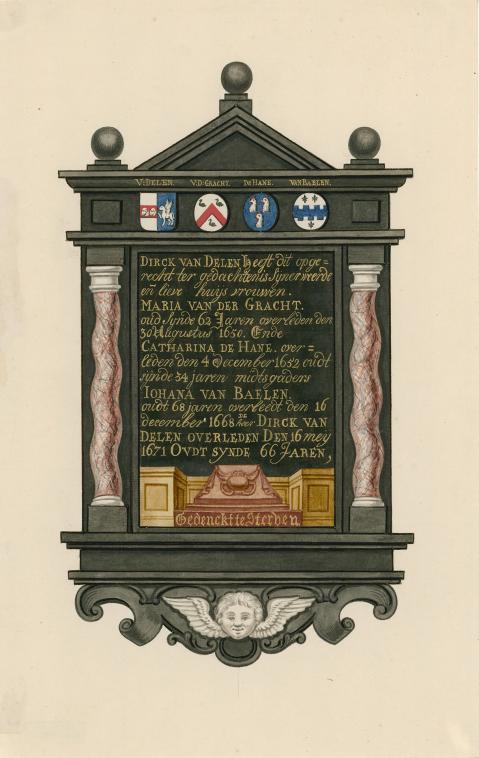 V: DELEN. V.D. GRACHT. DE HANE. VAN BAELEN.
DIRCK VAN DELEN heeft dit opge=
recht ter gedachtenis sijner weerde
en lieve huijs vrouwen.
MARIA VAN DER GRACHT.
oud synde 62 Jaren overleden den
30 Augustus 1650. Ende
CATHARINA DE HANE. over=
leden den 4 december 1652 oudt
sijnde 54 jaren midtsgaders
IOHANA VAN BAELEN.
oudt 68 jaren overleedt den 16
december 1668 DE heer DIRCK VAN
DELEN OVERLEDEN DEN 16 mey
1671 OVDT SYNDE 66 JAREN,
Gedenckt te Sterven